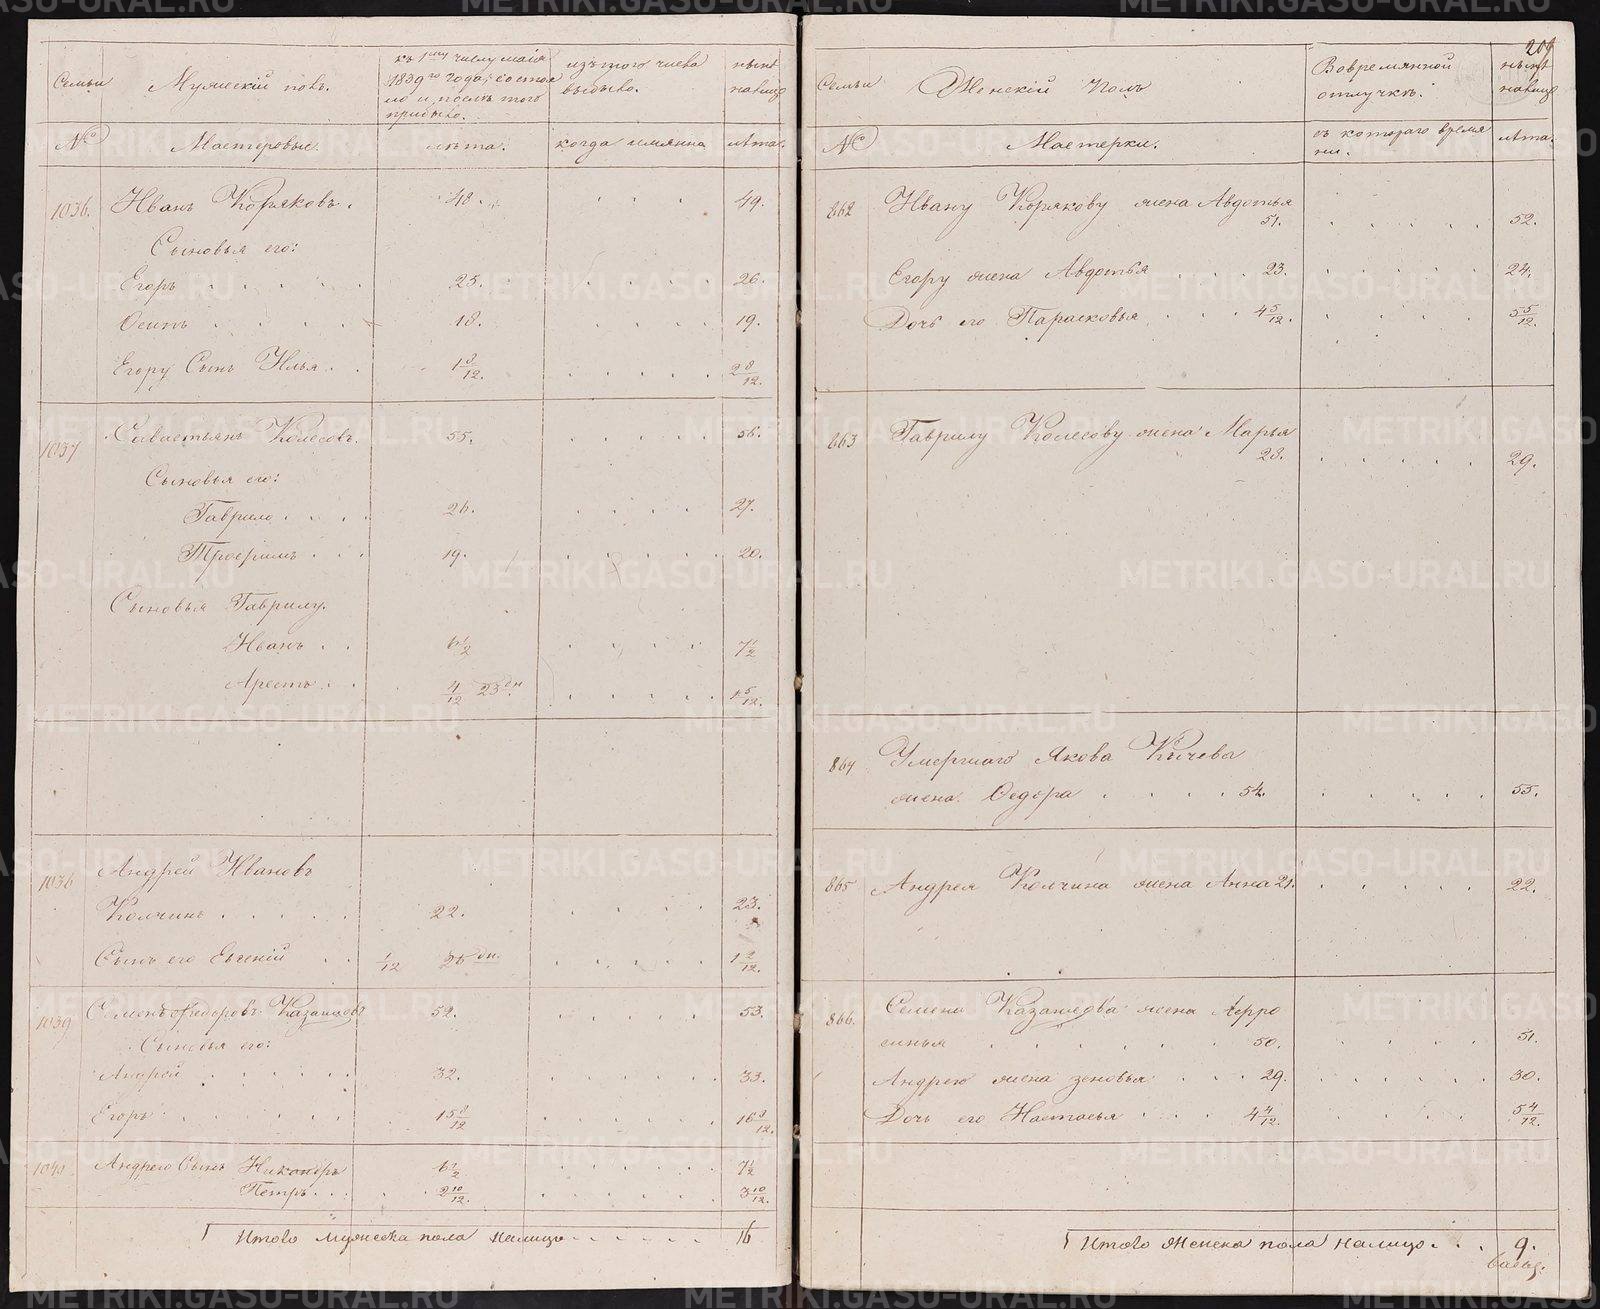 Семьи
Мужескій полъ.
къ 1му числу маія
1839го года, состоя
ло и послѣ того
прибыло.
изъ того числа
выбыло.
нынѣ
налицо
№
Мастеровые.
лѣта.
когда имянно
лѣта.
1036. Иванъ Коряковъ. 48. 49.
Сыновья его:
Егоръ 25. 26.
Осипъ 18. 19.
Егору Сынъ Илья 1 8/12. 2 8/12.
1037 Савастьянъ Колесовъ. 55. 56.
Сыновья его:
Гаврило 26. 27.
Трофимъ 19. 20.
Сыновья Гаврилу.
Иванъ 6 1/2 7 1/2
Арестъ 4/12 23 дн 1 5/12.
Андрей Ивановъ
Колчинъ 22. 23.
Сынъ его Евгеній 1/12 26 дн. 1 2/12.
1039 Семенъ Федоровъ Казанцовъ 52. 53.
Сыновья его:
Андрей 32. 33.
Егоръ 15 8/12 16 8/12.
1040 Андрею Сынъ Никаноръ 6 1/2 7 1/2
Петръ 2 10/12. 3 10/12.
Итого мужеска пола налицо 16
209
Семьи
Женскій Полъ
Вовремянной
отлучкѣ.
нынѣ
налицо
№
Мастерки.
съ котораго время
ни.
лѣта.
862 Ивану Корякову жена Авдотья
51. 52.
Егору жена Авдотья 23. 24.
Дочь его Парасковья 4 5/12. 5 5/12.
863 Гаврилу Колесову жена Марья
28. 29.
864 Умершаго Якова Кычева
жена Федора 54. 55.
865 Андрея Колчина жена Анна 21. 22.
866. Семена Казанцова жена Афро
синья 50. 51.
Андрею жена Зеновья 29. 30.
Дочь его Настасья 4 4/12. 5 4/12.
Итого Женска пола налицо 9.
METRIKI.GASO-URAL.RU